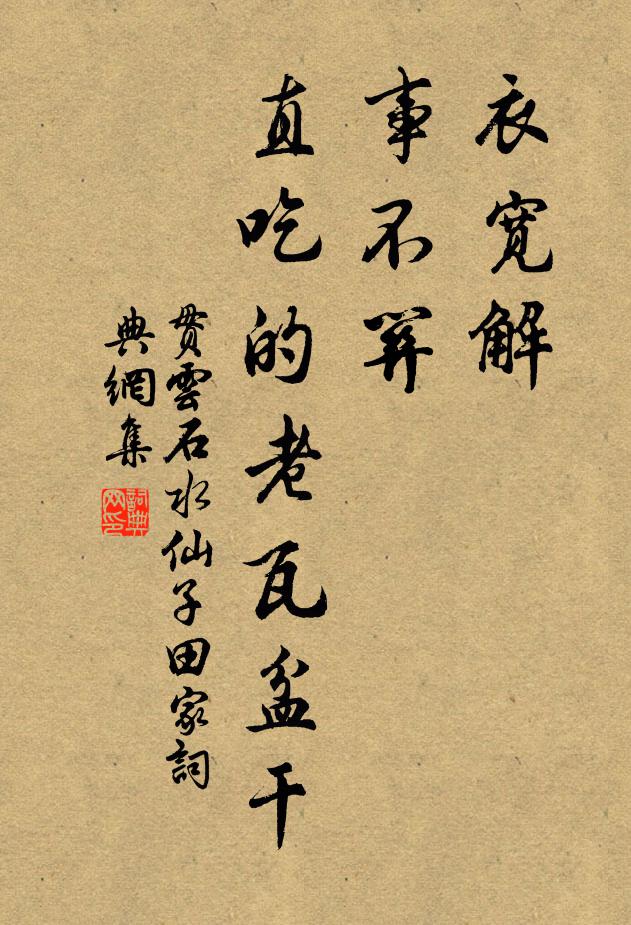 衣寬解
事不關
直吃的老瓦盆干
貫雲石水仙子田家詞
典網集
詞典
网印